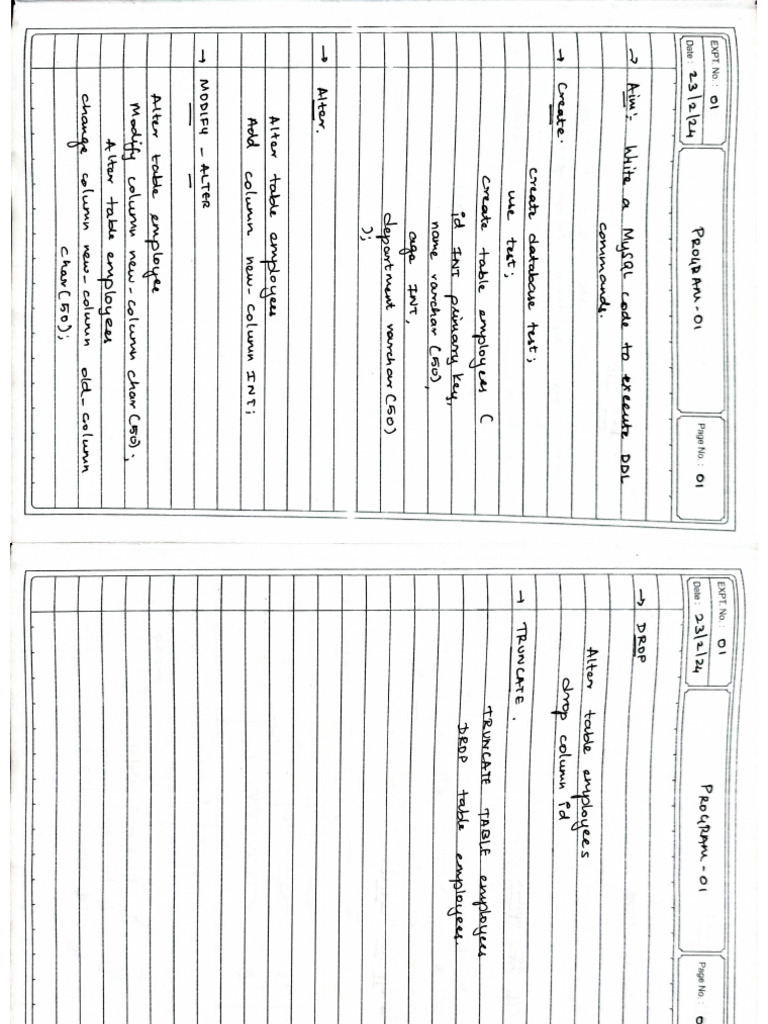 EXPT. No. : 01
Date : 23/2/24
PROGRAM - 01
Page No. : 01
→ Aim: Write a MySQL code to execute DDL
commands.
→ Create.
create database test;
use test;
create table employees (
id INT primary key,
name varchar (50),
age INT,
department varchar (50)
);
→ Alter.
Alter table employees
Add column new-column INT;
→ MODIFY - ALTER
Alter table employee
Modify column new-column char (50);
Alter table employees
change column new-column old-column
char (50);
EXPT. No. : 01
Date : 23/2/24
PROGRAM - 01
Page No. :
→ DROP
Alter table employees
drop column id
→ TRUNCATE.
TRUNCATE TABLE employees
DROP table employees.